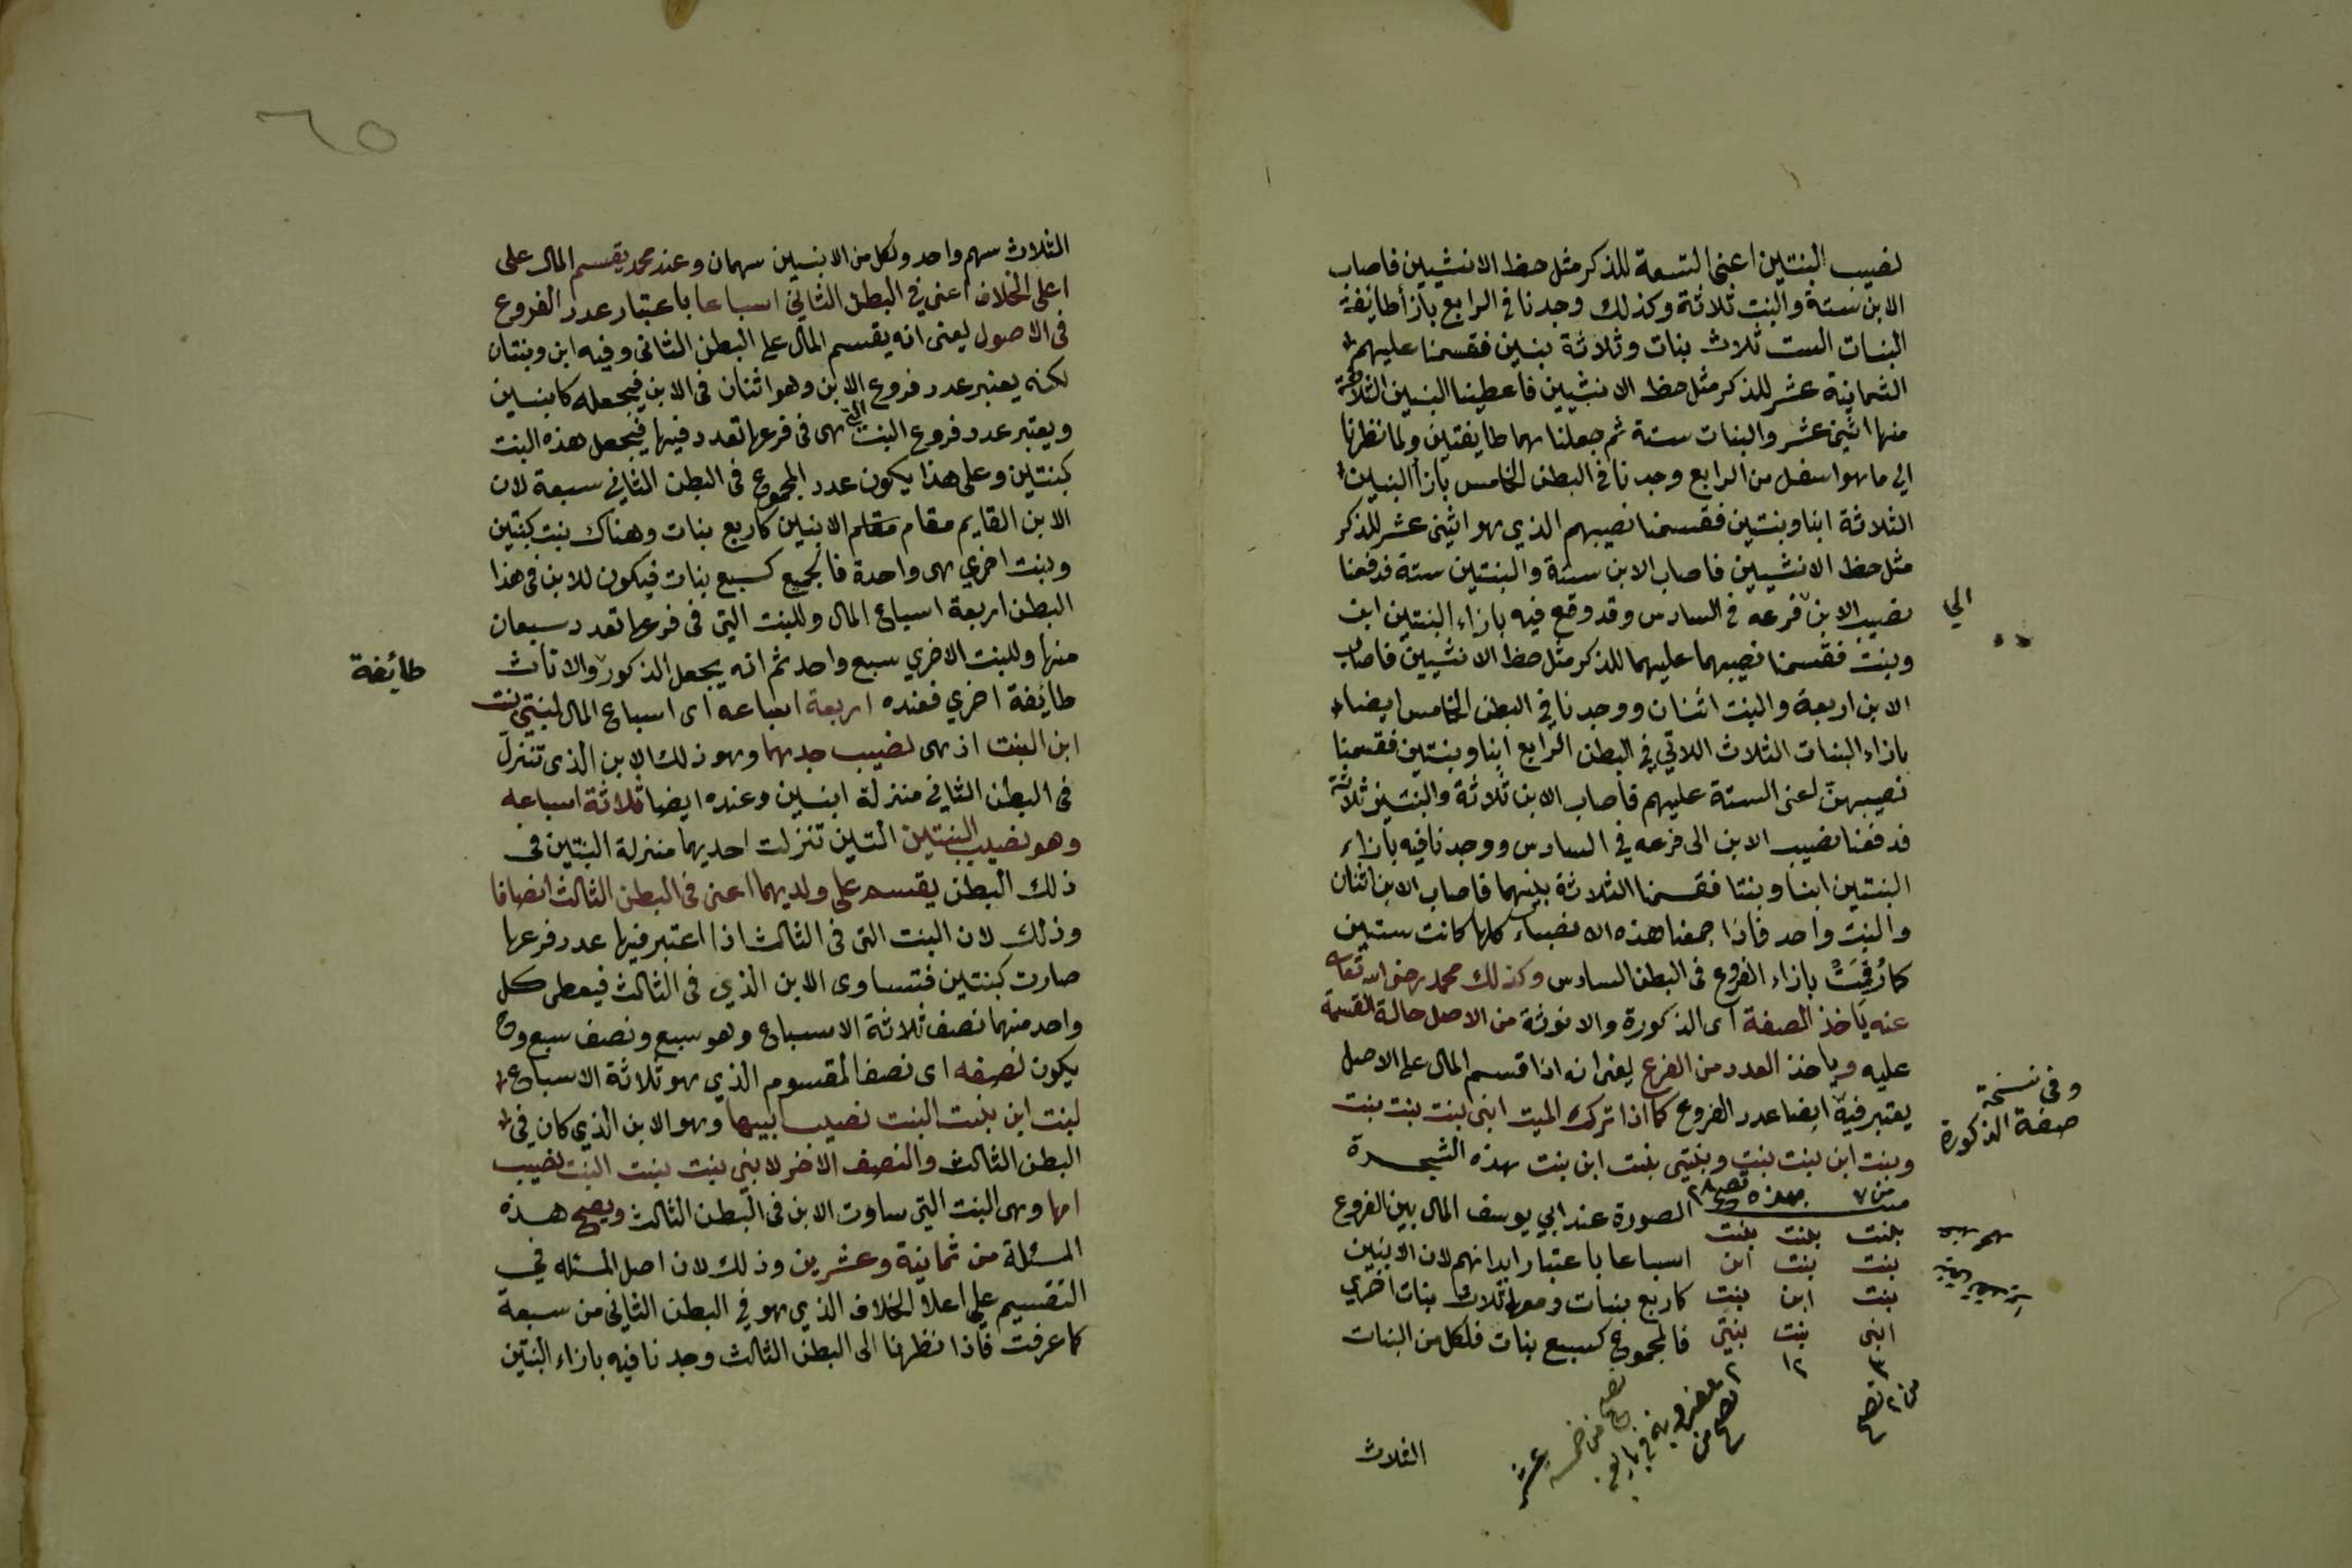 نصيب البنتين اعنى التسعة للذكر مثل حظ الانثيين فاصاب
الابن ستة والبنت ثلاثة وكذلك وجدنا في الرابع بازأ طائفة
البنات الست ثلاث بنات وثلاثة بنين فقسمنا عليهم
الثمانية عشر للذكر مثل حظ الانثيين فاعطينا البنين الثلاثة
منها اثنى عشر والبنات ستة ثم جعلنا هما طايفتين ولما نظرنا
الي ما هو اسفل من الرابع وجدنا في البطن الخامس بازأ البنين
الثلاثة ابنا وبنتين فقسمنا نصيبهم الذي هو اثنى عشر للذكر
مثل حظ الانثيين فاصاب الابن ستة والبنتين ستة فدفعنا
نصيب الابن فرعه في السادس وقد وقع فيه بازاء البنتين ابن
الى
وبنت فقسمنا نصيبهما عليهما للذكر مثل حظ الانثيين فاصاب
الابن اربعة والبنت اثنان ووجدنا في البطن الخامس ايضا
بازاء البنات الثلاث اللاتي في البطن الرابع ابنا وبنتين فقسمنا
نصيبهن اعنى الستة عليهم فاصاب الابن ثلاثة والبنتين ثلاثة
فدفعنا نصيب الابن الى فرعه في السادس ووجدنا فيه بازاء
البنتين ابنا وبنتا فقسمنا الثلاثة بينهما فاصاب الابن اثنان
والبنت واحد فاذا جمعنا هذه الانصباء كلها كانت ستين
كما رقمت بازاء الفروع فى البطن السادس وكذلك محمد رضى الله تعالى
عنه ياخذ الصفة اى الذكورة والانوثة من الاصل حالة القسمة
عليه وياخذ العدد من الفرع يعنى انه اذا قسم المال على الاصل
وفى نسخة
صفة الذكورة
يعتبر فيه ايضا عدد الفروع كما اذا ترك الميت ابنى بنت بنت بنت
وبنت ابن بنت بنت وبنتى بنت ابن بنت بهذه الشجرة
ميت من ٧ تصح ٢٨
بهذه الصورة عند ابي يوسف المال بين الفروع
بنت بنت بنت
بنت بنت ابن اسباعا باعتبار ابدانهم لان الابنين
بنت ابن بنت كاربع بنات ومعها ثلاث بنات اخري
ابنى بنت بنتي فالمجموع كسبع بنات فلكل من البنات
الثلاث
٦٥
الثلاث سهم واحد ولكل من الابنين سهمان وعند محمد يقسم المال على
اعلى الخلاف اعنى فى البطن الثاني اسباعا باعتبار عدد الفروع
فى الاصول يعنى انه يقسم المال على البطن الثانى وفيه ابن وبنتان
لكنه يعتبر عدد فروع الابن وهو اثنان فى الابن فيجعله كابنين
ويعتبر عدد فروع البنت التى هى فى فرعها تعدد فيها فيجعل هذه البنت
كبنتين وعلى هذا يكون عدد المجموع فى البطن الثاني سبعة لان
الابن القايم مقام مقام الابنين كاربع بنات وهناك بنت كبنتين
وبنت اخري هى واحدة فالجميع كسبع بنات فيكون للابن فى هذا
البطن اربعة اسباع المال وللبنت التي فى فرعها تعدد سبعان
منها وللبنت الاخري سبع واحد ثم انه يجعل الذكور والاناث
طائفة
طائفة اخري فعنده اربعة اسباعه اى اسباع المال لبنتي بنت
ابن البنت اذ هى نصيب جدهما وهو ذلك الابن الذى تنزل
فى البطن الثانى منزلة ابنين وعنده ايضا ثلاثة اسباعه
وهو نصيب البنتين التين تنزلت احديهما منزلة البنتين فى
ذلك البطن يقسم على ولديهما اعنى فى البطن الثالث انصافا
وذلك لان البنت التى فى الثالث اذا اعتبر فيها عدد فرعها
صارت كبنتين فتساوى الابن الذي فى الثالث فيعطى كل
واحد منهما نصف ثلاثة الاسباع وهو سبع ونصف سبع وح
يكون نصفه اى نصف المقسوم الذي هو ثلاثة الاسباع
لبنت ابن بنت البنت نصيب ابيها وهو الابن الذي كان فى
البطن الثالث والنصف الاخر لابني بنت بنت البنت نصيب
امها وهى البنت التي ساوت الابن فى البطن الثالث ويصح هذه
المسئلة من ثمانية وعشرين وذلك لان اصل المسئله في
التقسيم على اعلا الخلاف الذي هو في البطن الثانى من سبعة
كما عرفت فاذا نظرنا الى البطن الثالث وجدنا فيه بازاء البنتين